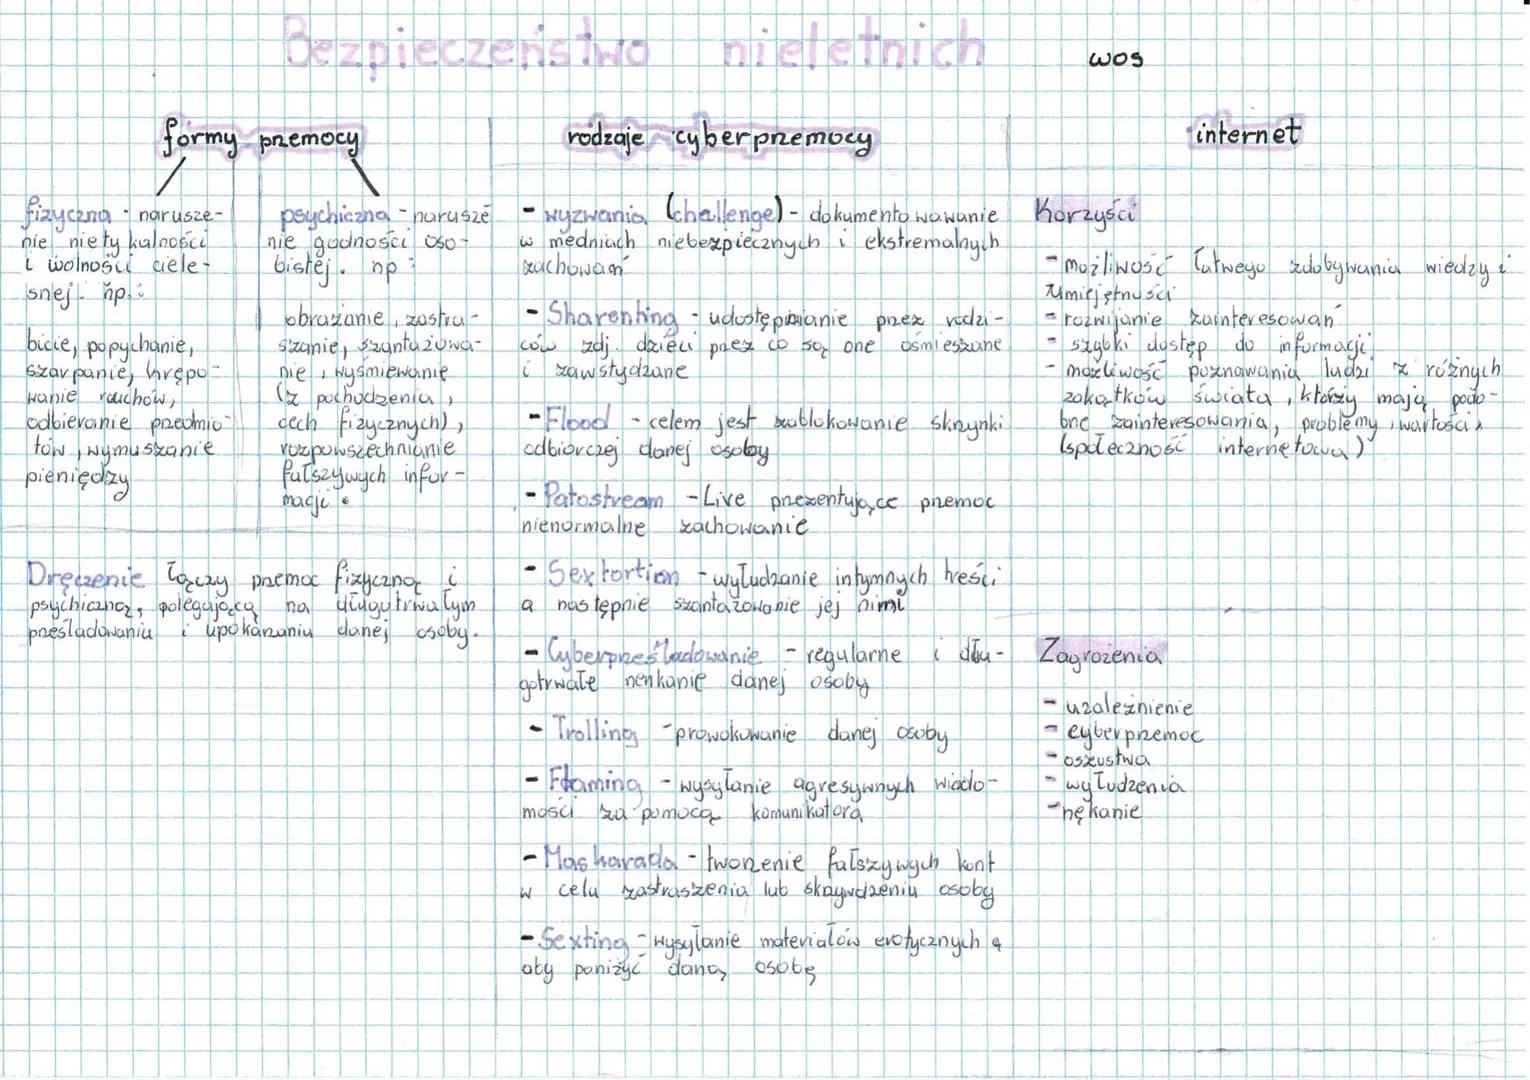 Bezpieczeństwo nieletnich
wos
formy przemocy
fizyczna - narusze-
nie niety kalności
i wolności ciele-
snej. np.:
bicie, popychanie,
szarpanie, krępo-
wanie ruchów,
odbieranie przedmio-
tów, wymuszanie
pieniędzy
psychiczna - narusze
nie godności oso-
bistej. np:
obrażanie, zastra-
szanie, szantażowa-
nie, wyśmiewanie
(z pochodzenia,
cech fizycznych),
rozpowszechnianie
fałszywych infor-
macji.
Dręczenie łączy przemoc fizyczną i
psychiczną, polegającą na długotrwałym
prześladowaniu i upokarzaniu danej osoby.
rodzaje cyberprzemocy
- wyzwania (challenge) - dokumento wawanie
w medniach niebezpiecznych i ekstremalnych
zachowań
- Sharenting - udostępnianie przez rodzi-
ców zdj. dzieci przez co są one ośmieszane
i zawstydzane
- Flood - celem jest zablokowanie skrzynki
odbiorczej danej osoby
- Patostream - Live prezentujące przemoc
nienormalne zachowanie
- Sextortion - wyłudzanie intymnych treści
a następnie szantażowanie jej nimi
- Cyberprześladowanie - regularne i dłu-
gotrwałe nenkanie danej osoby
- Trolling - prowokowanie danej osoby
- Flaming - wysyłanie agresywnych wiado-
mości za pomocą komunikatora
- Maskarada - tworzenie fałszywych kont
w celu zastraszenia lub skrzywdzeniu osoby
- Sexting - wysyłanie materiałów erotycznych
aby poniżyć daną osobę
internet
Korzyści
- możliwość łatwego zdobywania wiedzy i
umiejętności
- rozwijanie zainteresowań
- szybki dostęp do informacji
- możliwość poznawania ludzi z różnych
zakątków świata, którzy mają podo-
bne zainteresowania, problemy, wartości,
(społeczność internetowa)
Zagrożenia
- uzależnienie
- cyberprzemoc
- oszustwa
- wyłudzenia
- nękanie